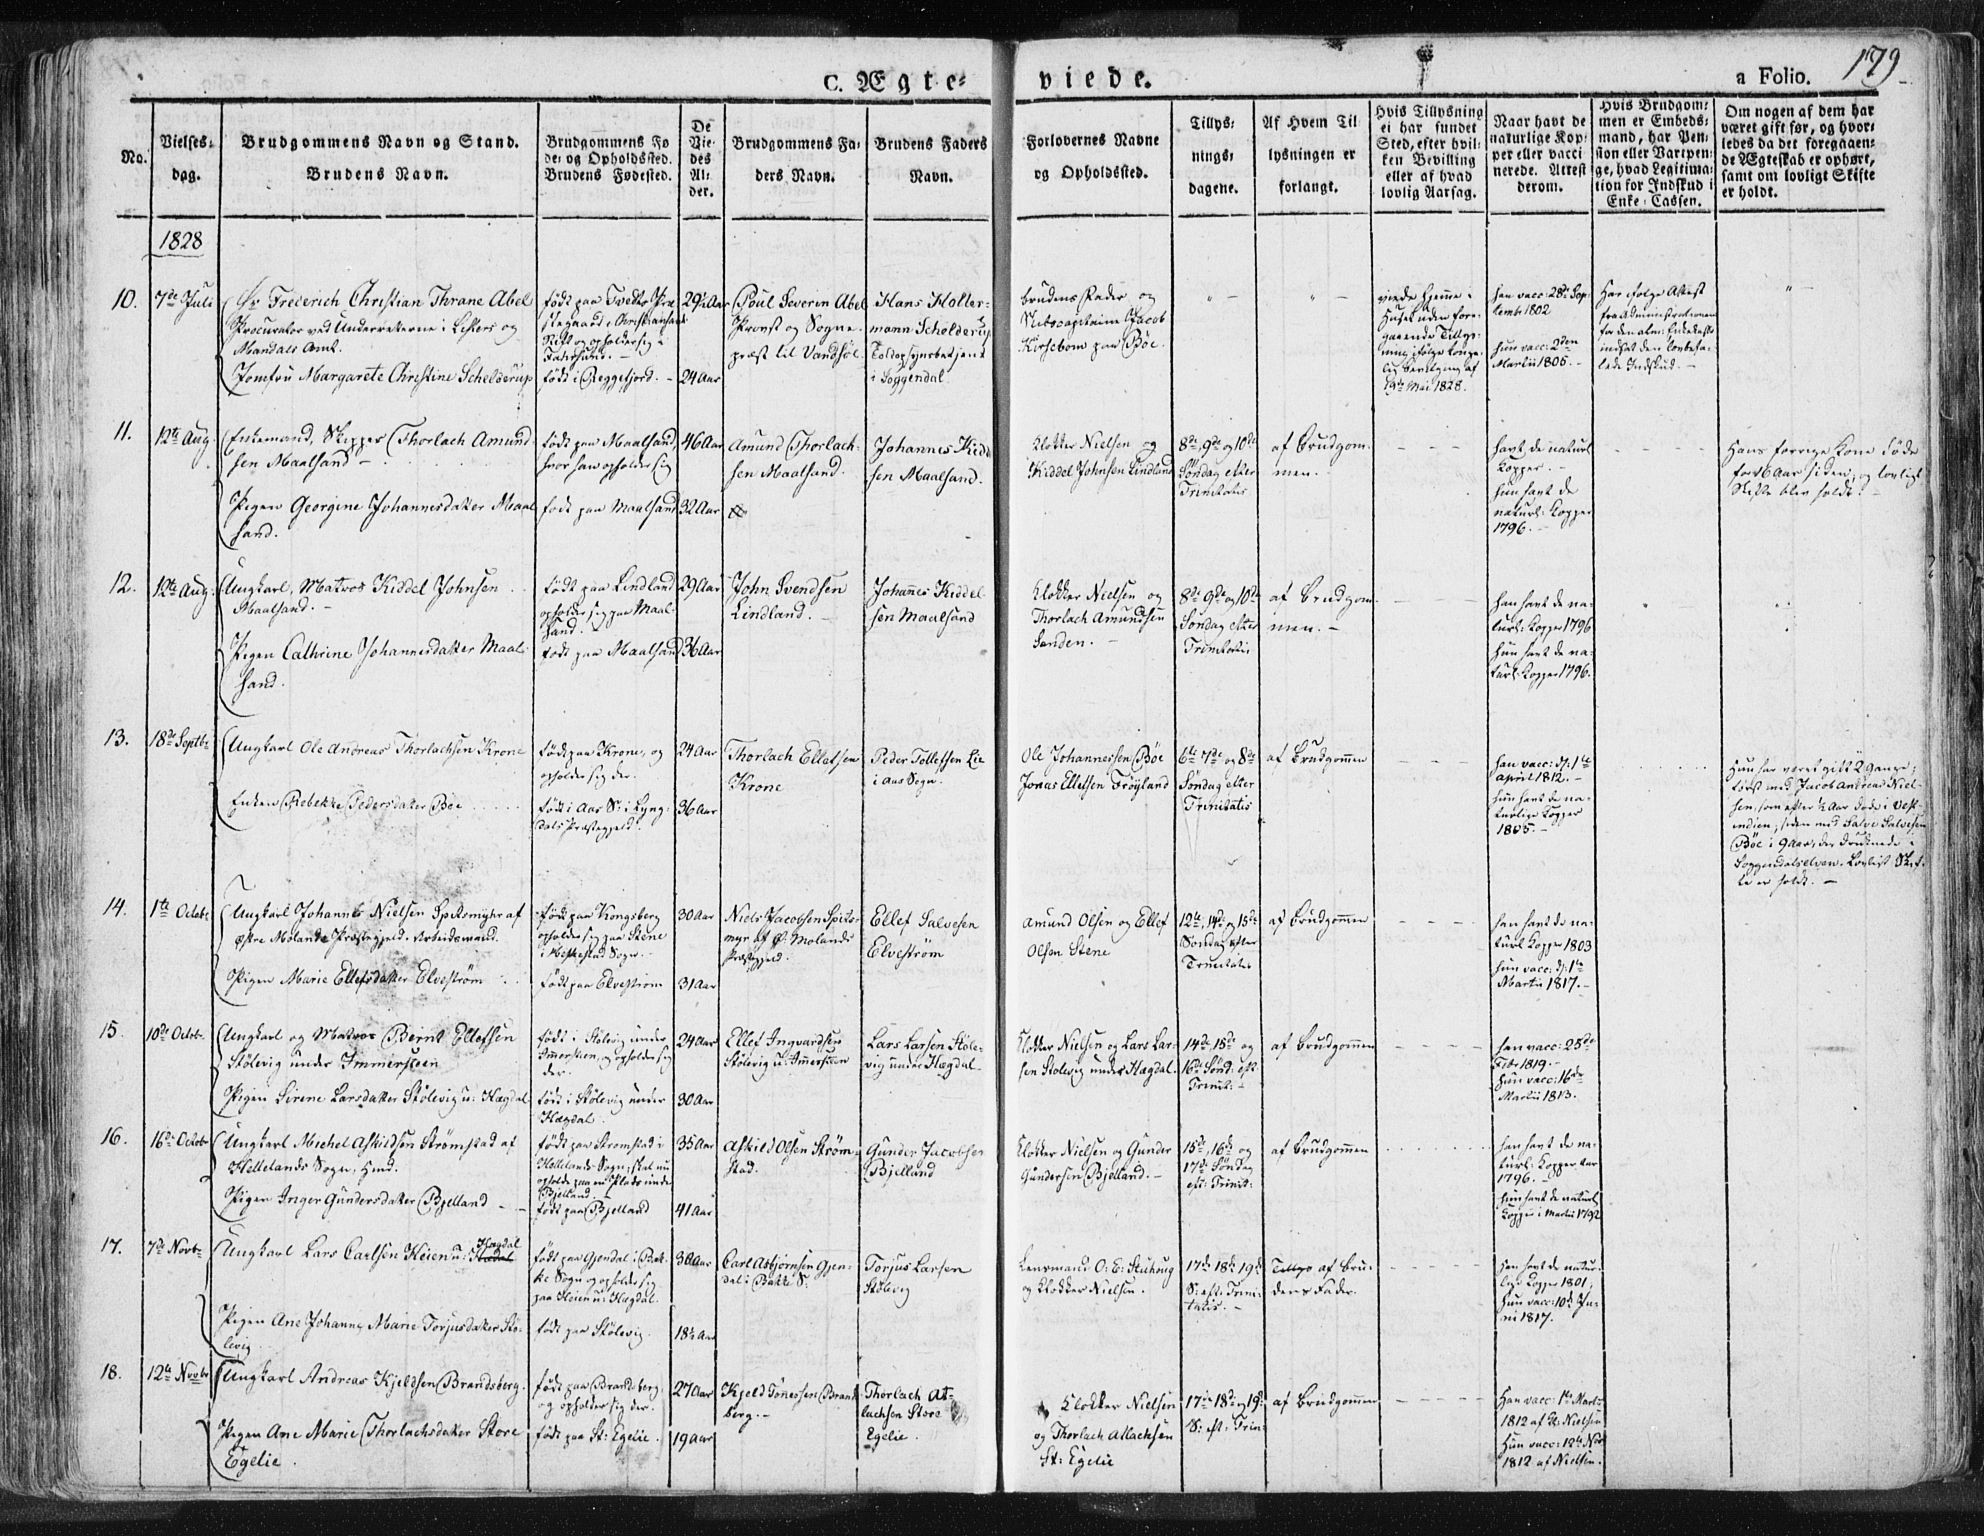 C. Ægte-
viede.
a Folio. 179
No.
Vielses-
dag.
Brudgommens Navn og Stand.
Brudens Navn.
Brudgommens Fø
de- og Opholdssted.
Brudens Fødested.
De
Vie-
des
Al-
der.
Brudgommens Fa-
ders Navn.
Brudens Faders
Navn.
Forlovernes Navne
og Opholdssted.
Tillys-
nings-
dagene.
Af Hvem Til
lysningen er
forlangt.
Hvis Tillysning
ei har fundet
Sted, efter hvil-
ken Bevilling
eller af hvad
lovlig Aarsag.
Naar havt de
naturlige Kop-
per eller vacci
nerede. Attest
derom.
Hvis Brudgom-
men er Embeds-
mand, har Pen-
sion eller Vartpen-
ge, hvad Legitima-
tion for Indskud i
Enke-Cassen.
Om nogen af dem har
været gift før, og hvor-
ledes da det foregaaen-
de Ægteskab er ophørt,
samt om lovligt Skifte
er holdt.
1828
10.
7de Juli
Hr Frederich Christian Thrane Abel
Procurator ved Underretterne i Listers og
Mandals Amt.
Jomfru Margarete Christine Schelderup
født i Reggefjord.
29½ Aar
24 Aar
Poul Severin Abel
Provst og Sogne-
præst til Vandsøe
Hans Holler-
mann Schelderup
Toldopsynsbetjent
i Soggendal.
brudens Fader og
Skibscapitaine Jacob
Kirsebom paa Bøe.
" —
" —
viede hjemme i
Huset uden fore-
gaaende Tillys-
ning ifølge konge-
lig bevilgning af
19de Mai 1828.
han vacc: 28de Sep-
tembr 1802
hun vacc: 2den
Martii 1805. -
Har ifølge Attest
fra Administrationen
for den alm: Enkekasse
indsat den lovbefa-
lede Indskud. -
" -
11.
12te Aug.
Enkemand, Skipper Thorlach Amund-
sen Maalsand -
Pigen Georgine Johannesdatter Maal
sand.
født paa Maalsand,
hvor han opholder sig
født paa Maalsand
46 Aar
32 Aar
Amund Thorlach-
sen Maalsand.
Johannes Kidd
sen Maalsand.
Klokker Nielsen og
Kiddel Johnsen Lindland
8de, 9de og 10de
Søndag efter
Trinitatis
af Brudgom-
men.
havt de naturl
Kopper. -
hun havt de
naturl: Kopper
1796. -
Hans forrige Kone døde
for 6 Aar siden, og lovligt
Skifte blev holdt. -
12.
12te Aug.
Ungkarl, Matros Kiddel Johnsen
Maalsand. -
Pigen Cathrine Johannesdatter Maal-
sand.
født paa Lindland
opholder sig paa Maal-
sand.
født paa Maalsand
29 Aar
36 Aar
John Svendsen
Lindland. -
Johannes Kiddel-
sen Maalsand
Klokker Nielsen og
Thorlach Amundsen
Sanden. -
8de 9de og 10de
Søndag efter
Trinitatis
af Brudgom-
men. -
han havt de na-
turl: Kopper 1796
hun havt de na-
turl: Kopper 1796.
13.
18de Septbr
Ungkarl Ole Andreas Thorlachsen Krone
Enken Rebekke Pedersdatter Bøe
født paa Krone, og
opholder sig der.
født i Aas S: i Lyng-
dals Præstegjeld.
24 Aar
36 Aar
Thorlach Ellefsen
Krone
Peder Tollefsen Lie
i Aas Sogn.
Ole Johannessen Bøe
Jonas Ellefsen Frøyland
6te 7de og 8de
Søndag efter
Trinitatis
af Brudgommen
han vacc: d: 1te
april 1812. -
hun havt de na-
turlige Kopper
1805. -
Hun har været gift 2 Gange;
først med Jacob Andreas Niel-
sen, som efter ½ Aar døde i Vest-
indien; siden med Salve Salvesen
Bøe i 9 Aar, der druknede i
Soggendalselven. Lovligt Skif-
te er holdt. -
14.
1te Octobr
Ungkarl Johannes Nielsen Spitsmyhr af
østre Molands Præstegjeld. Arbeidsmand.
Pigen Marie Ellefsdatter Elvestrøm
født paa Kongsberg
opholder sig paa Stene
i Heskestad Sogn.
født paa Elvestrøm
30 Aar
31 Aar
Niels Jacobsen Spits-
myr af Ø. Molands
Præstegjeld.
Ellef Salvesen
Elvestrøm
Amund Olsen og Ellef
Olsen Stene
12te, 14de og 15de
Søndag efter
Trinitatis
af Brudgommen
han havt de na-
turl Kopper 1803
hun vacc: d: 1te
Martii 1817. -
15.
10de Octobr.
Ungkarl og Matros Bernt Ellefsen
Stølevig under Immersteen
Pigen Sirene Larsdatter Stølevig u: Hægdal
født i Stølevig under
Immersteen, og opholder sig
der.
født i Stølevig under
Hægdal.
24 Aar
30 Aar
Ellef Ingvardsen
Stølevig u: Immersteen
Lars Larsen Støle-
vig under Hægdal.
Klokker Nielsen og Lars Lar-
sen Stølevig under Hægdal.
14de, 15de og
16de Sønd: eft.
Trinit: -
af Brudgommen
han vacc: 28de
Febr 1819. -
hun vacc: 16de
Martii 1813.
16.
16de Octobr
Ungkarl Michel Askildsen Strømstad af
Hellelands Sogn, Hmd.
Pigen Inger Gundersdatter Bjelland -
født paa Strømstad i
Hellelands Sogn; skal nu
opholde paa en Plads under
Bjelland. -
født paa Bjelland
35 Aar
41 Aar
Askild Olsen Strøm-
stad.
Gunder Jacobsen
Bjelland
Klokker Nielsen og Gunder
Gundersen Bjelland. -
15de, 16de og
17de Søndag
eft: Trinit:
af Brudgommen
han havt de na-
turl: Kopper
1796. -
hun havt de naturl
Kopper i Martii 1792
17.
7de Novbr
Ungkarl Lars Carlsen Heien u: Hægdal
Pigen Ane Johanne Marie Torjusdatter Stø-
levig
født paa Gjendal i Bak-
ke Sogn og opholder sig
paa Heien u: Hægdal.
født paa Stølevig.
30 Aar
18½ Aar
Carl Asbjørnsen Gjen-
dal i Bakke S.
Torjus Larsen
Stølevig
Lensmand O: E: Stuhoug
og Klokker Nielsen.
17de 18de 19de
S: eft: Trini-
tatis. -
Tillyst af Bru-
dens Fader.
han havt de natur-
lige Kopper 1801,
hun vacc: 10de Ju-
ni 1817.
18.
12te Novbr
Ungkarl Andreas Kjeldsen Brandsberg.
Pigen Ane Marie Thorlachsdatter Store
Egelie.
født paa Brandsberg,
og opholder sig der.
født paa St: Egelie.
27 Aar
19 Aar
Kjeld Tønnessen Brands
berg. -
Thorlach At-
lachsen Store
Egelie.
Klokker Nielsen
og Thorlach Atlachsen
St: Egelie
17de 18de og 19de
S: eft: Trin:
af Brudgommen
Han vacc: 1te Marts
1812 af Kl: Nielsen
Hun vacc: 12te Nov
1812 af Nielsen.